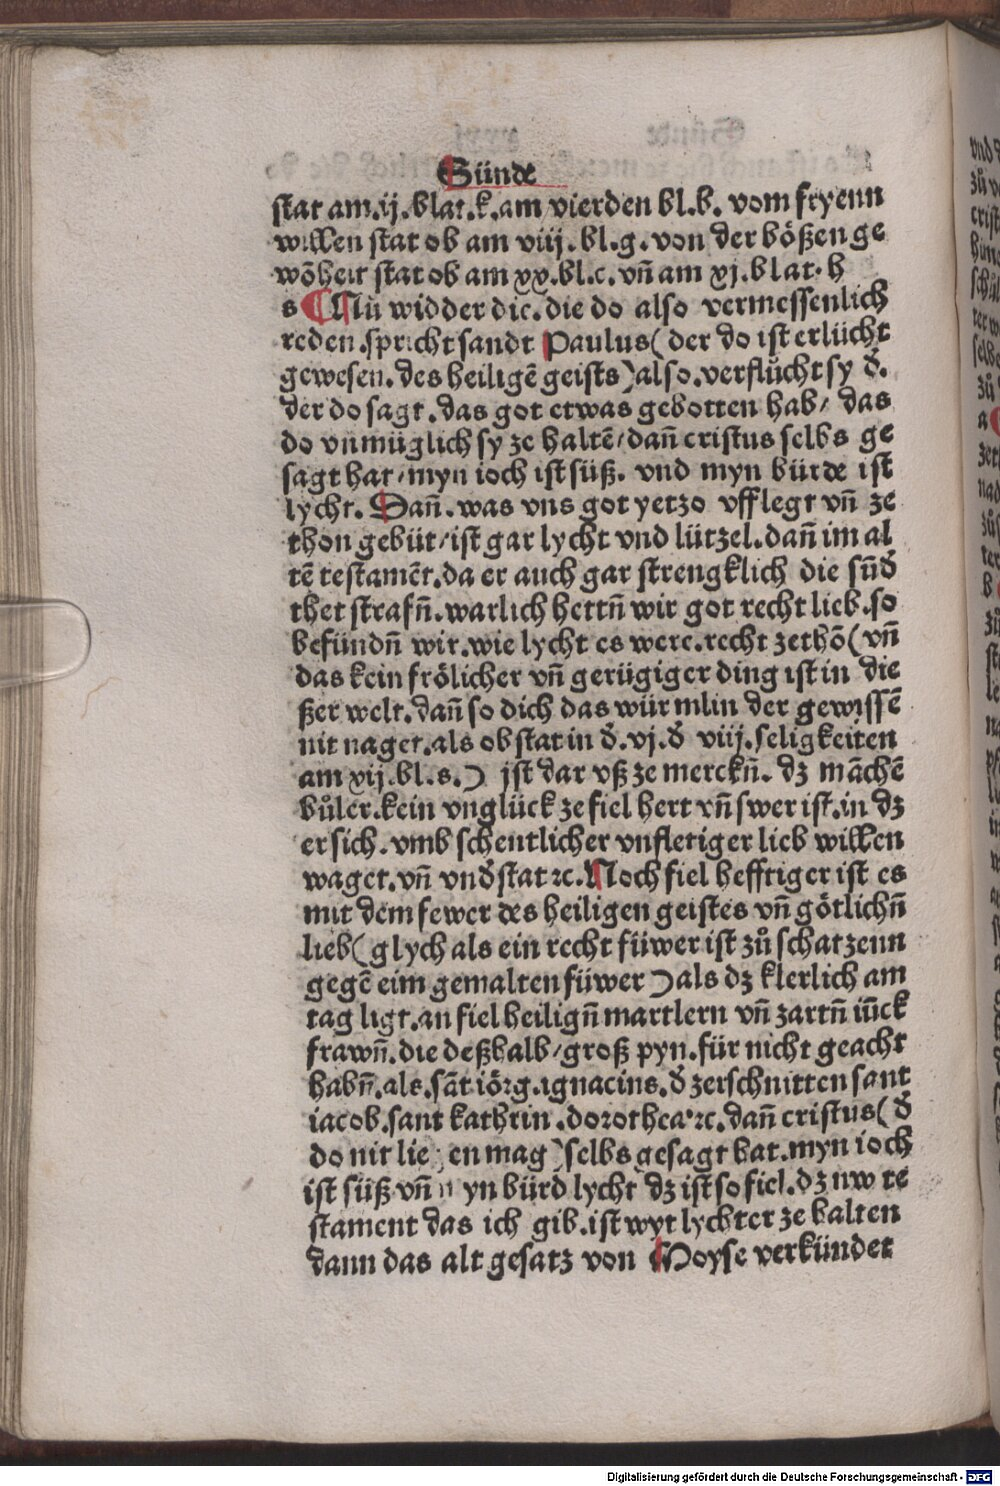 Sünde
stat am.ij.blat.k.am vierden bl.b. vom fryenn
willen stat ob am viij.bl.g.von der bößen ge
wõheit stat ob am xx.bl.c.vñ am xj.blat.h
s ¶ Nů widder die.die do also vermessenlich
reden.spricht sandt Paulus(der do ist erlücht
gewesen.des heiligẽ geists)also.verflůcht sy đ.
der do sagt.das got etwas gebotten hab/ das
do vnmüglich sy ze haltẽ/dañ cristus selbs ge
sagt hat/myn ioch ist süß. vnd myn bürde ist
lycht. Dañ.was vns got yetzo vfflegt vñ ze
thon gebüt/ist gar lycht vnd lützel.dañ im al
tẽ testamẽt.da er auch gar strengklich die sünđ
thet strafñ.warlich hettñ wir got recht lieb.so
befündñ wir.wie lycht es were.recht zethõ(vñ
das kein frölicher vñ gerügiger ding ist in die
ßer welt.dañ so dich das würmlin der gewissẽ
nit naget.als ob stat in đ.vj.đ viij.seligkeiten
am xij.bl.s.) jst dar vß ze merckñ. dz mãchẽ
bůler.kein vnglück ze fiel hert vñ swer ist.in dz
er sich.vmb schentlicher vnfletiger lieb willen
waget.vñ vnđstat ꝛc.Noch fiel hefftiger ist es
mit dem fewer des heiligen geistes vñ götlichñ
lieb(glych als ein recht füwer ist zů schatzenn
gegẽ eim gemalten füwer)als dz klerlich am
tag ligt.an fiel heiligñ martlern vñ zartñ iũck
frawñ.die deßhalb/groß pyn.für nicht geacht
habñ.als.sãt iörg.ignacius.đ zerschnitten sant
iacob.sant kathrin.dorothea ꝛc.dañ cristus(đ
do nit en mag)selbs gesagt hat.myn ioch
ist süß vñ yn bürd lycht dz ist so fiel.dz nw te
stament das ich gib.ist wyt lychter ze halten
dann das alt gesatz von Moyse verkündet
Digitalisierung gefördert durch die Deutsche Forschungsgemeinschaft - DFG